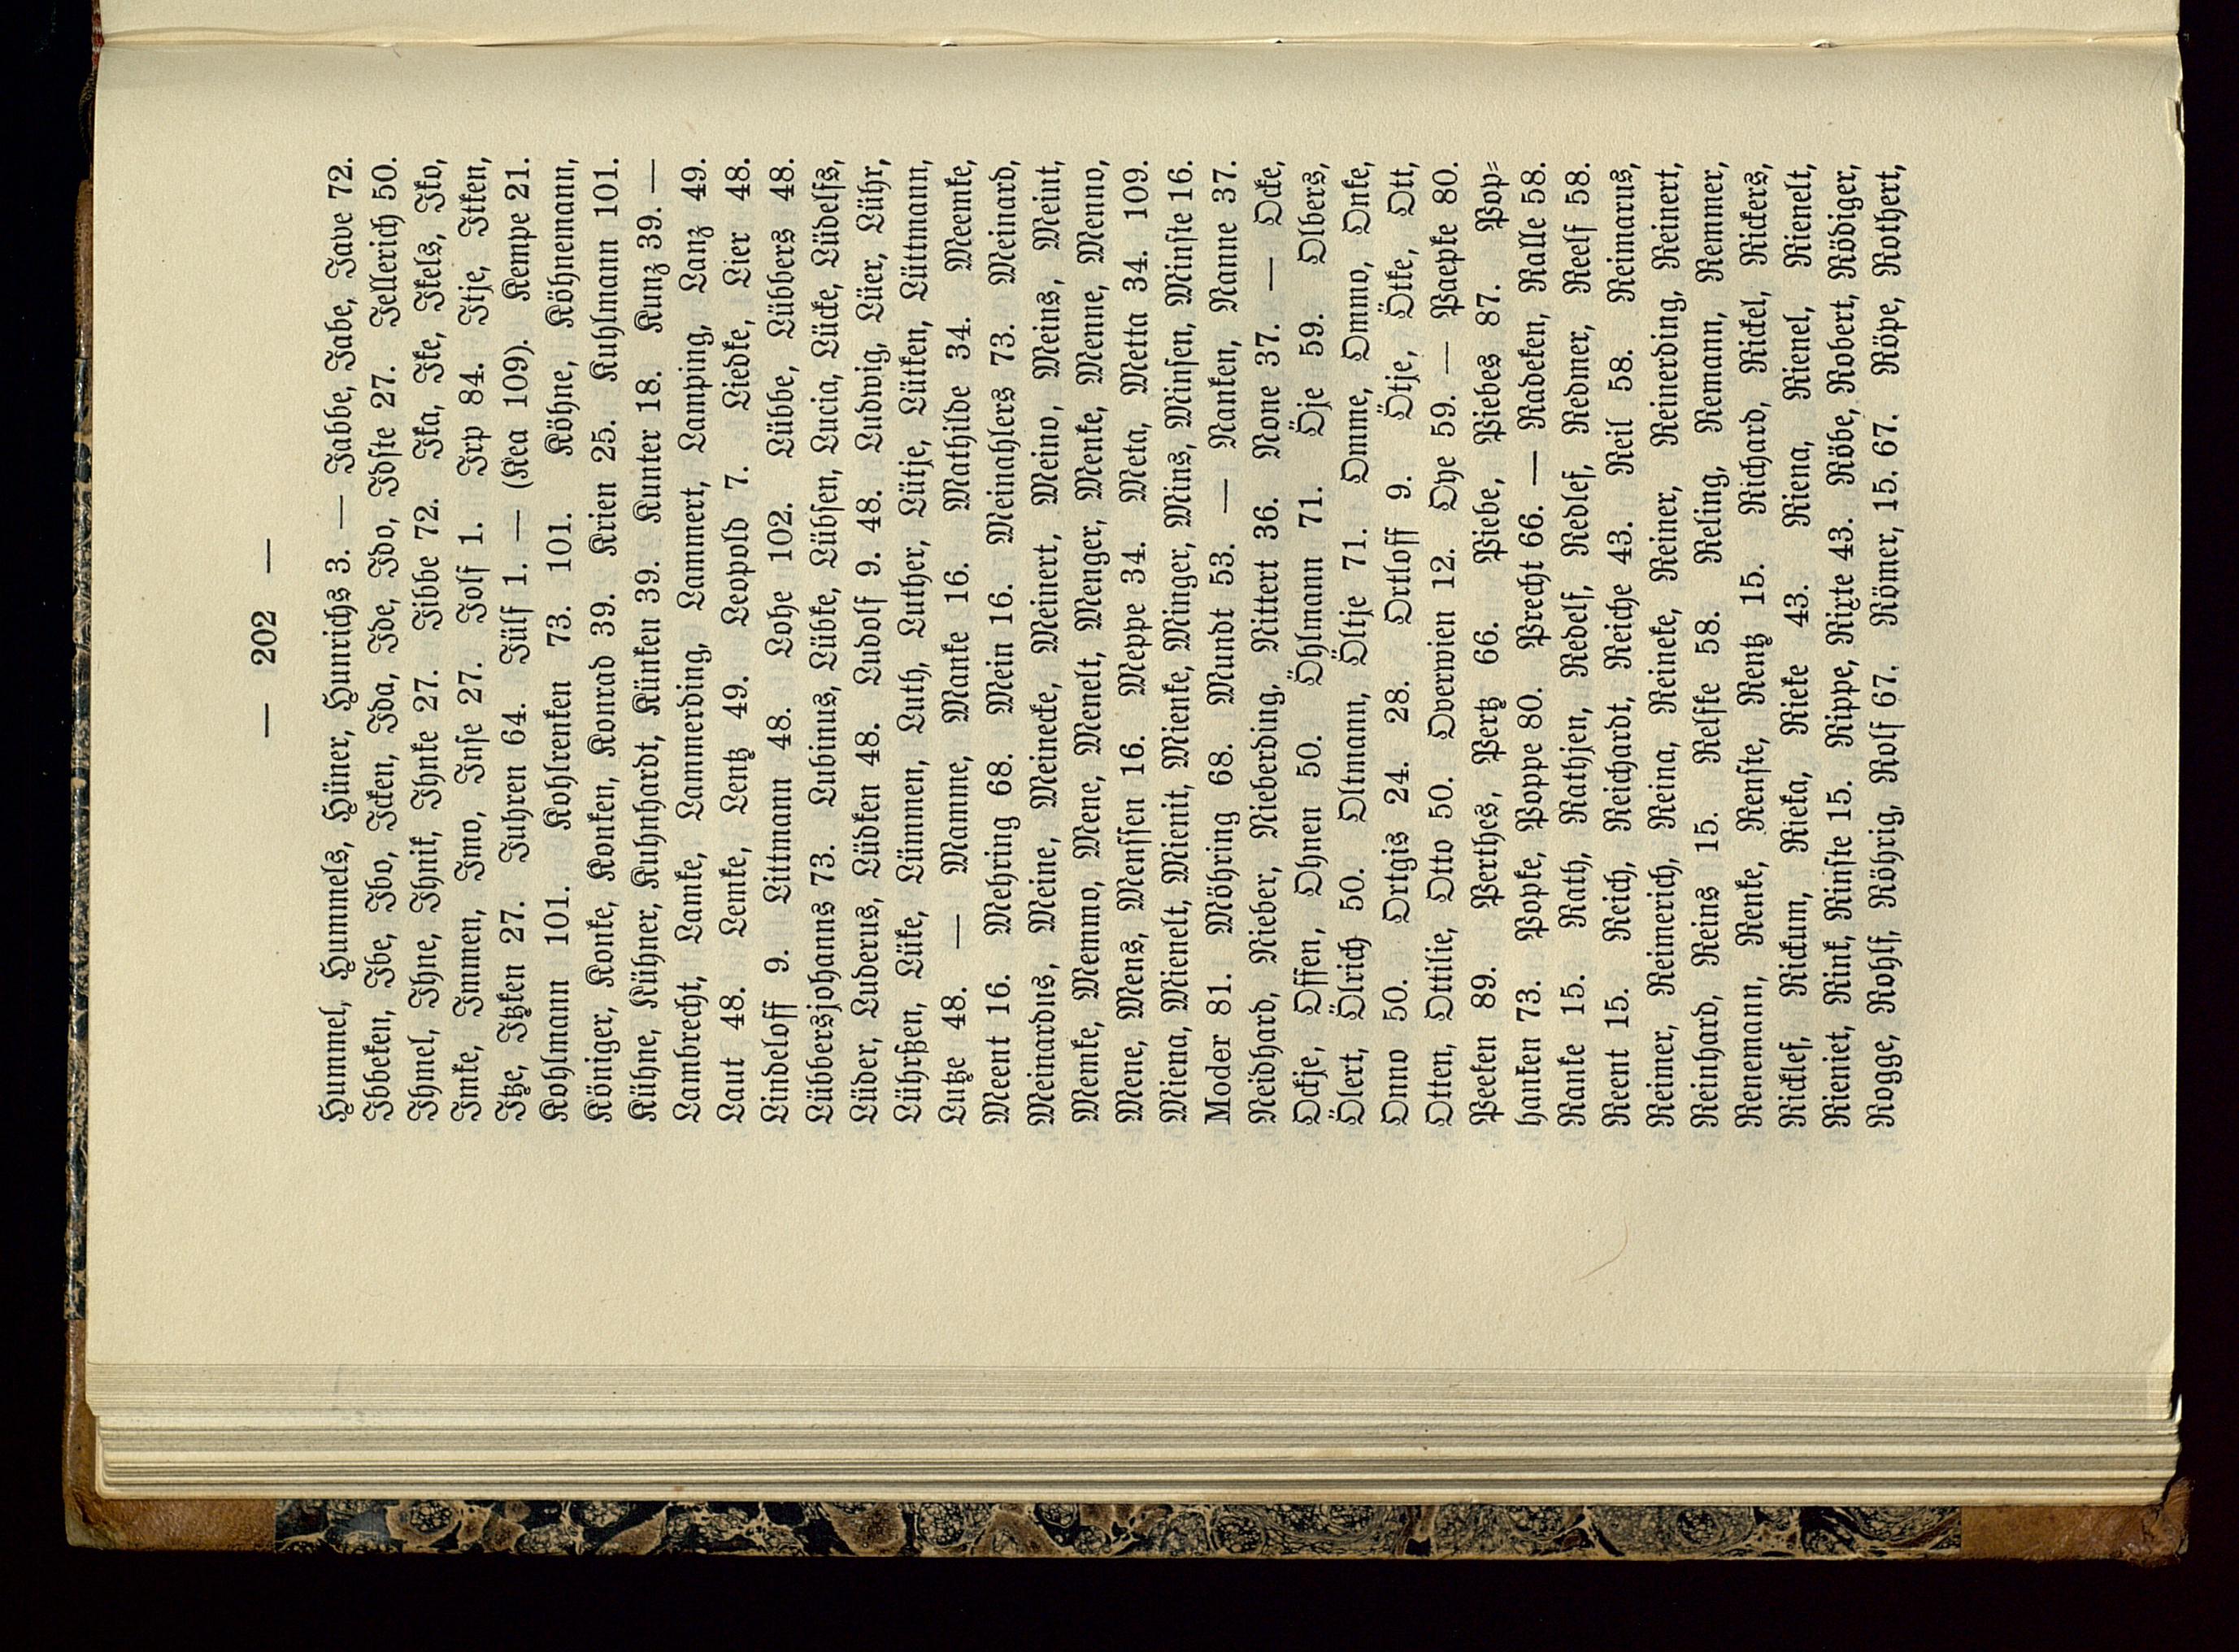 — 202 —
Hummel, Hummels, Hüner, Hunrichs 3. — Jabbe, Jabe, Jave 72.
Ibbeken, Ibe, Ibo, Icken, Ida, Ide, Ido, Idſte 27. Jellerich 50.
Ihmel, Ihne, Ihnik, Ihnke 27. Jibbe 72. Ika, Ike, Ikels, Iko,
Imke, Immen, Imo, Inſe 27. Jolf 1. Irp 84. Itje, Itken,
Itze, Itzken 27. Juhren 64. Jülf 1. — (Kea 109). Kempe 21.
Kohlmann 101. Kohlrenken 73. 101. Köhne, Köhnemann,
Königer, Konke, Konken, Konrad 39. Krien 25. Kuhlmann 101.
Kühne, Kühner, Kuhnhardt, Künken 39. Kunter 18. Kunz 39. —
Lambrecht, Lamke, Lammerding, Lammert, Lamping, Lanz 49.
Laut 48. Lemke, Lentz 49. Leopold 7. Liedke, Lier 48.
Lindeloff 9. Littmann 48. Lohe 102. Lübbe, Lübbers 48.
Lübbersjohanns 73. Lubinus, Lübke, Lübſen, Lucia, Lücke, Lüdelfs,
Lüder, Luderus, Lüdken 48. Ludolf 9. 48. Ludwig, Lüer, Lühr,
Lührßen, Lüke, Lümmen, Luth, Luther, Lütje, Lütken, Lüttmann,
Lutze 48. — Mamme, Manke 16. Mathilde 34. Meemke,
Meent 16. Mehring 68. Mein 16. Meinahlers 73. Meinard,
Meinardus, Meine, Meinecke, Meinert, Meino, Meins, Meint,
Memke, Memmo, Mene, Menelt, Menger, Menke, Menne, Menno,
Mene, Mens, Menſſen 16. Meppe 34. Meta, Metta 34. 109.
Miena, Mienelt, Mienit, Mienke, Minger, Mins, Minſen, Minſte 16.
Moder 81. Möhring 68. Mundt 53. — Nanken, Nanne 37.
Neidhard, Nieber, Nieberding, Nittert 36. None 37. — Ocke,
Ockje, Offen, Ohnen 50. Öhlmann 71. Öje 59. Olbers,
Ölert, Ölrich 50. Oltmann, Öltje 71. Omme, Ommo, Onke,
Onno 50. Ortgis 24. 28. Ortloff 9. Ötje, Ötke, Ott,
Otten, Ottilie, Otto 50. Overwien 12. Oye 59. — Paepke 80.
Peeken 89. Perthes, Pertz 66. Piebe, Piebes 87. Pop⸗
hanken 73. Popke, Poppe 80. Precht 66. — Radeken, Ralle 58.
Ranke 15. Rath, Rathjen, Redelf, Redlef, Redmer, Reelf 58.
Reent 15. Reich, Reichardt, Reiche 43. Reil 58. Reimarus,
Reimer, Reimerich, Reina, Reineke, Reiner, Reinerding, Reinert,
Reinhard, Reins 15. Relfke 58. Reling, Remann, Remmer,
Renemann, Renke, Renſte, Rentz 15. Richard, Rickel, Rickers,
Ricklef, Rickum, Rieka, Rieke 43. Riena, Rienel, Rienelt,
Rieniet, Rink, Rinſte 15. Rippe, Rixte 43. Röbe, Robert, Rödiger,
Rogge, Rohlf, Röhrig, Rolf 67. Römer, 15. 67. Röpe, Rothert,